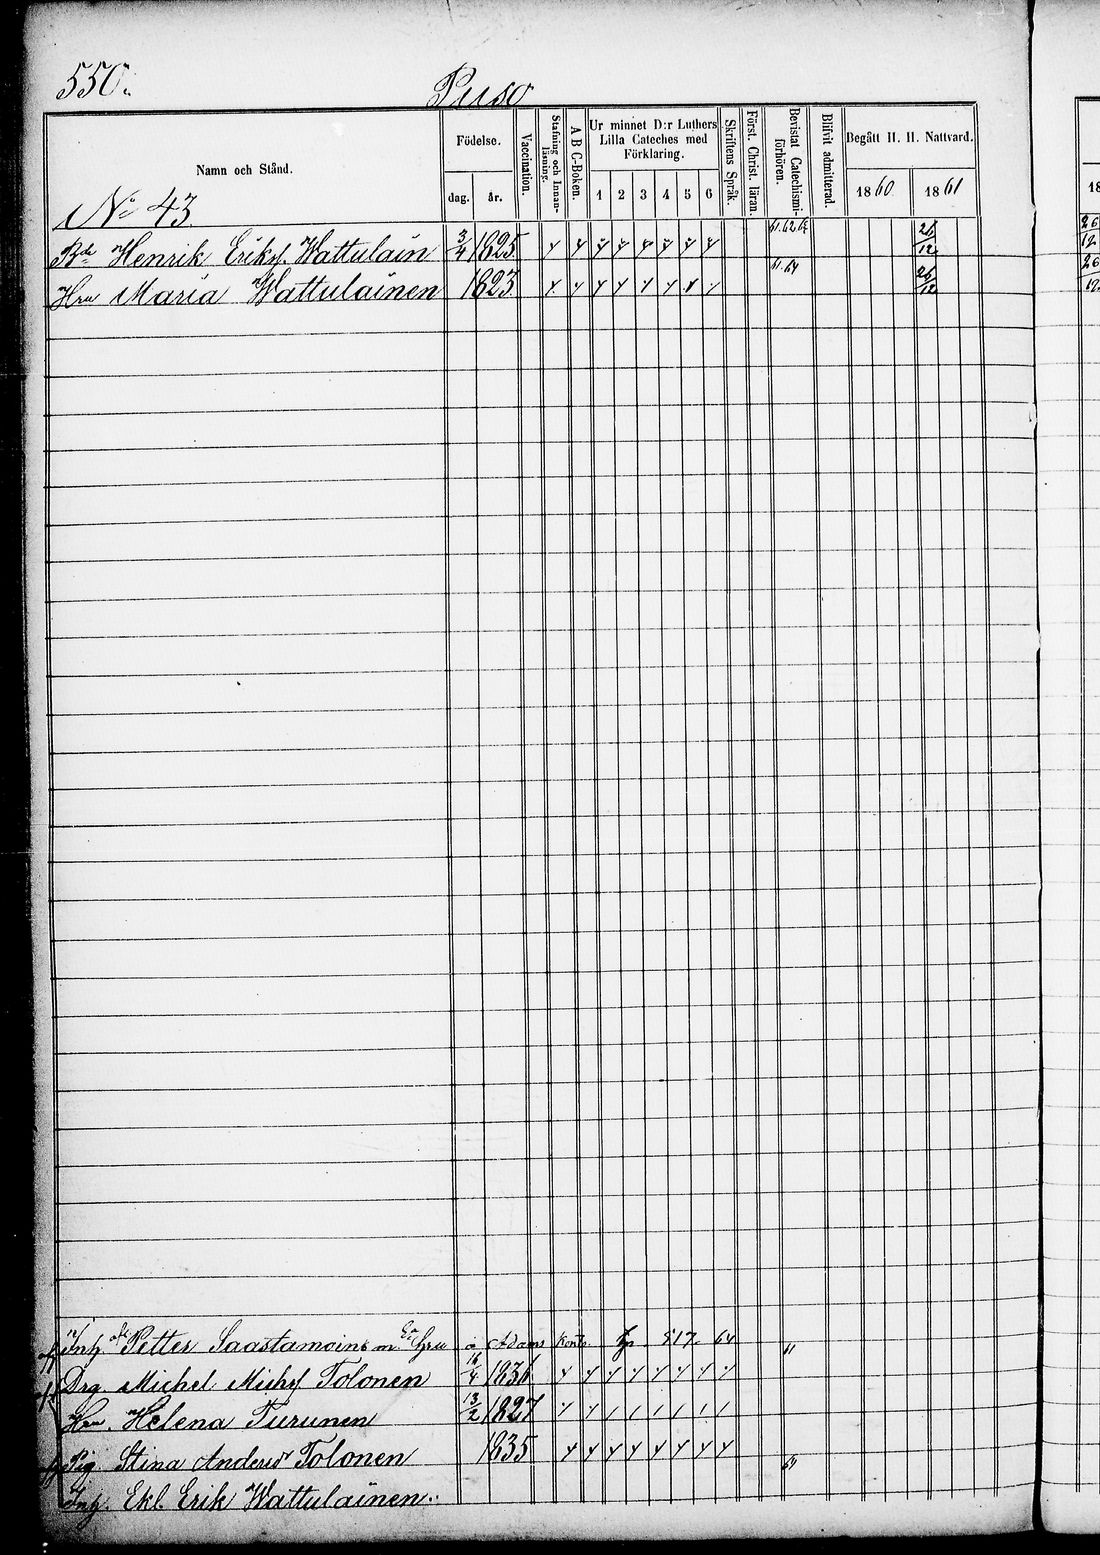 550.
Puso
Namn och Stånd.
Födelse.
dag. år.
Vaccination.
Stafning och Innanläsning.
A B C-Boken.
Ur minnet D:r Luthers Lilla Cateches med Förklaring.
1 2 3 4 5 6
Skriftens Språk.
Först. Christ. läran.
Bevistat Catechismi-förhören.
Blifvit admitterad.
Begått H. H. Nattvard.
1860 1861
No 43.
Bde Henrik Eriks. Wattulain 3/4 1825 61. 62 26/12
Hru Maria Wattulainen 1823. 61. 64 26/12
Inh Petter Saastamoin m. Hru å Adams 517 64
Drg. Michel Michs Tolonen 16/4 1836
Hru. Helena Turunen 13/2 1827
Pig. Stina Andersdr Tolonen 1835
Inh. Ekl. Erik Wattulainen.